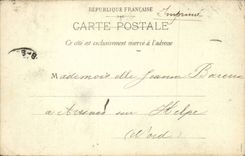 RÉPUBLIQUE FRANÇAISE
Imprimé
CARTE POSTALE
Ce côté est exclusivement réservé à l'adresse
Mademoiselle Jeanne
a Avesnes sur Helpe
(Nord)